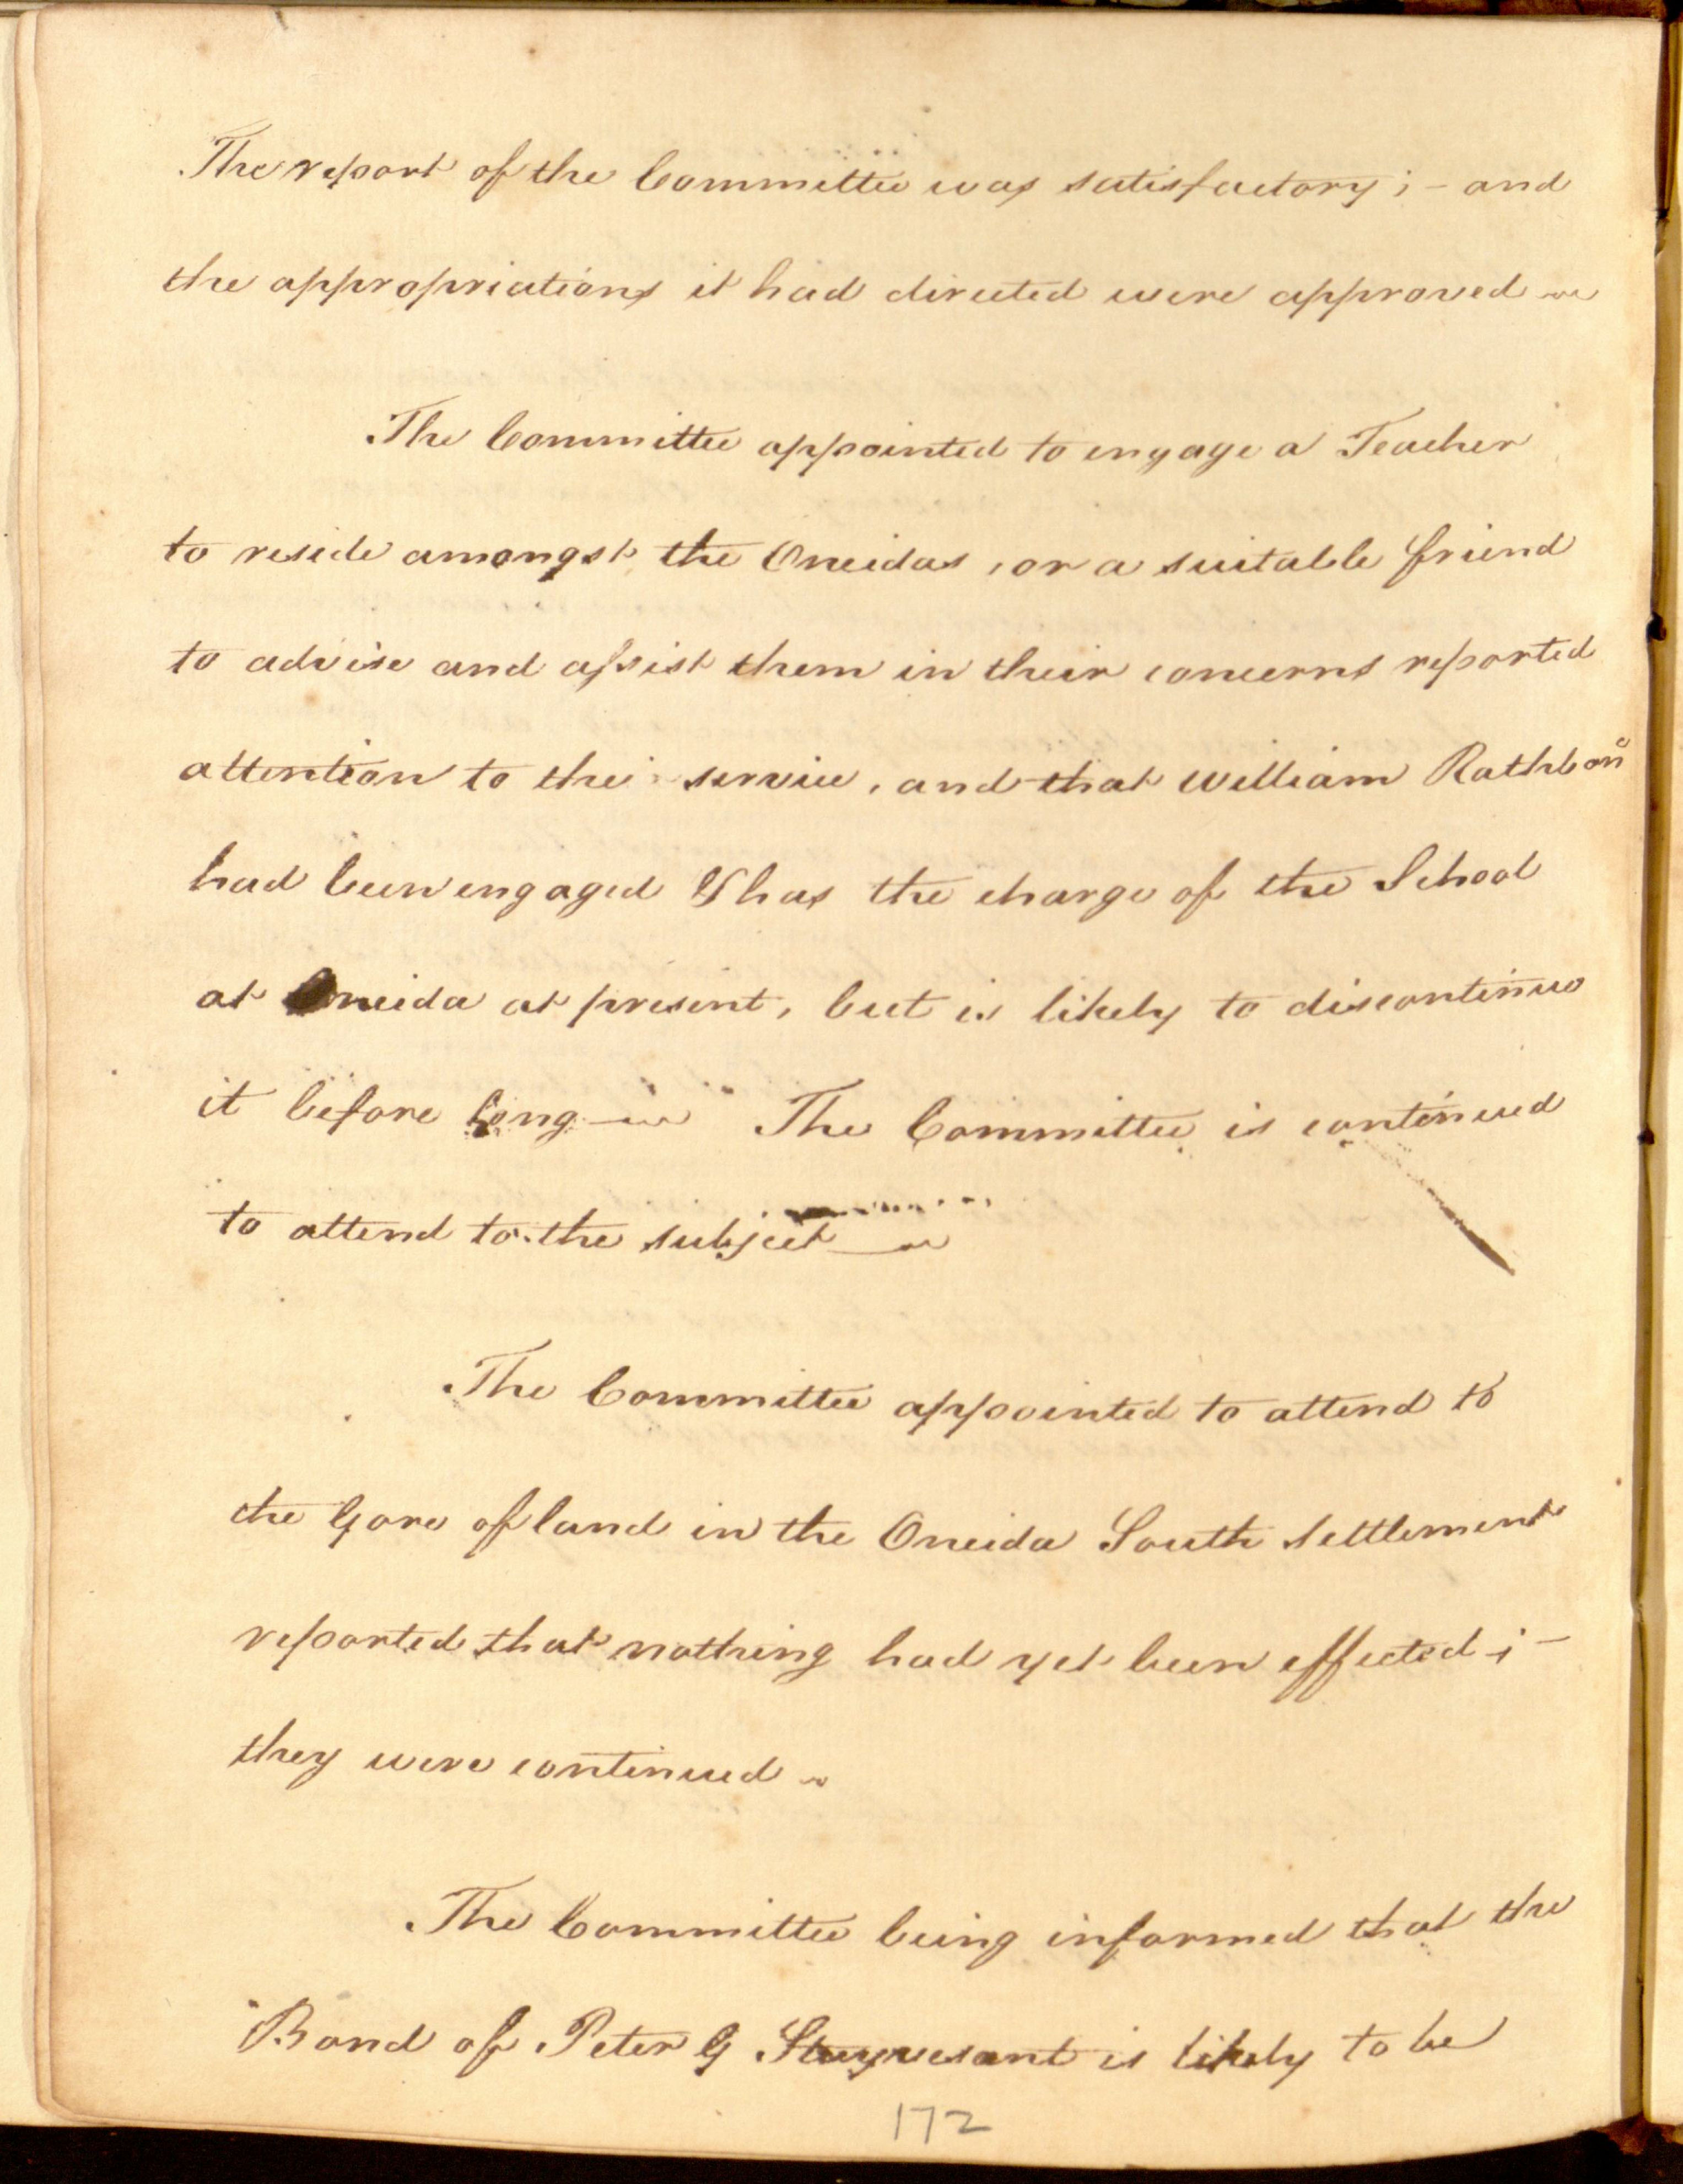 The report of the Committee was satisfactory; – and
the appropriations it had directed were approved
The Committee appointed to engage a Teacher
to reside amongst the Oneidas, or a suitable friend
to advise and assist them in their concerns reported
attention to the service, and that William Rathbone
had been engaged & has the charge of the School
at Oneida at present, but is likely to discontinue
it before long — The Committee is continued
to attend to the subject —
The Committee appointed to attend to
the Gore of land in the Oneida South Settlement
reported that nothing had yet been effected; –
they were continued
The Committee being informed that the
Bond of Peter G Stuyvesant is likely to be
172